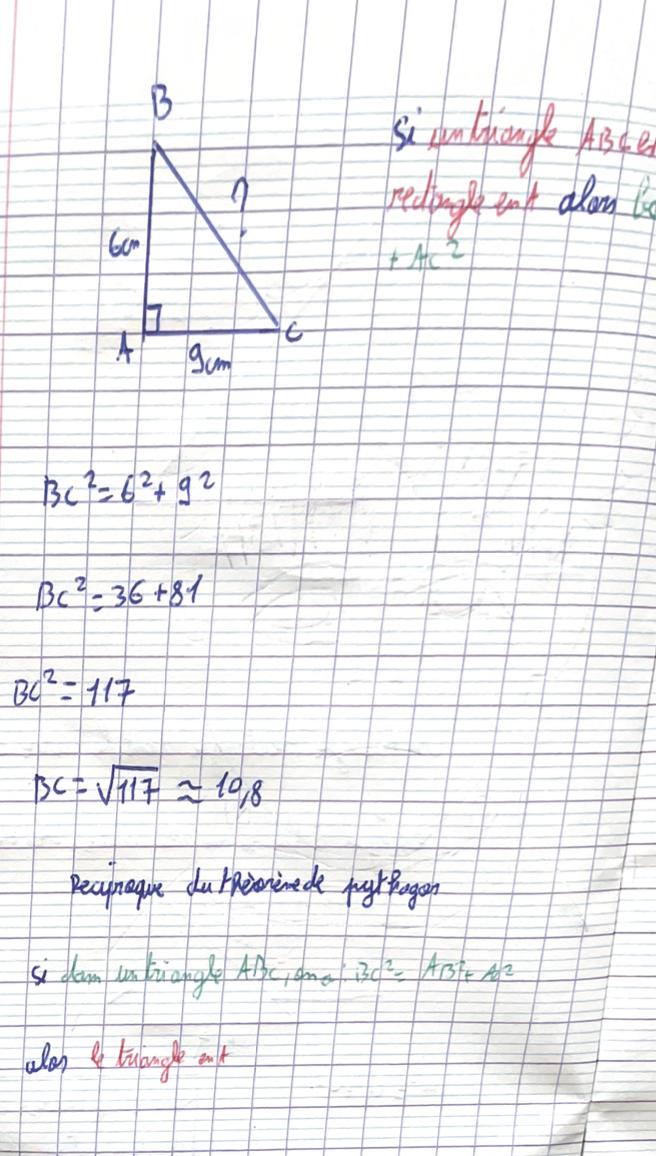 B
Si un triangle ABC es
rectangle en A alors BC
+ AC²
?
6cm
A
C
9cm
BC² = 6² + 9²
BC² = 36 + 81
BC² = 117
BC = √117 ≈ 10,8
Reciproque du théorème de pythagor
si dans un triangle ABC, on a : BC² = AB² + AC²
alors le triangle en A